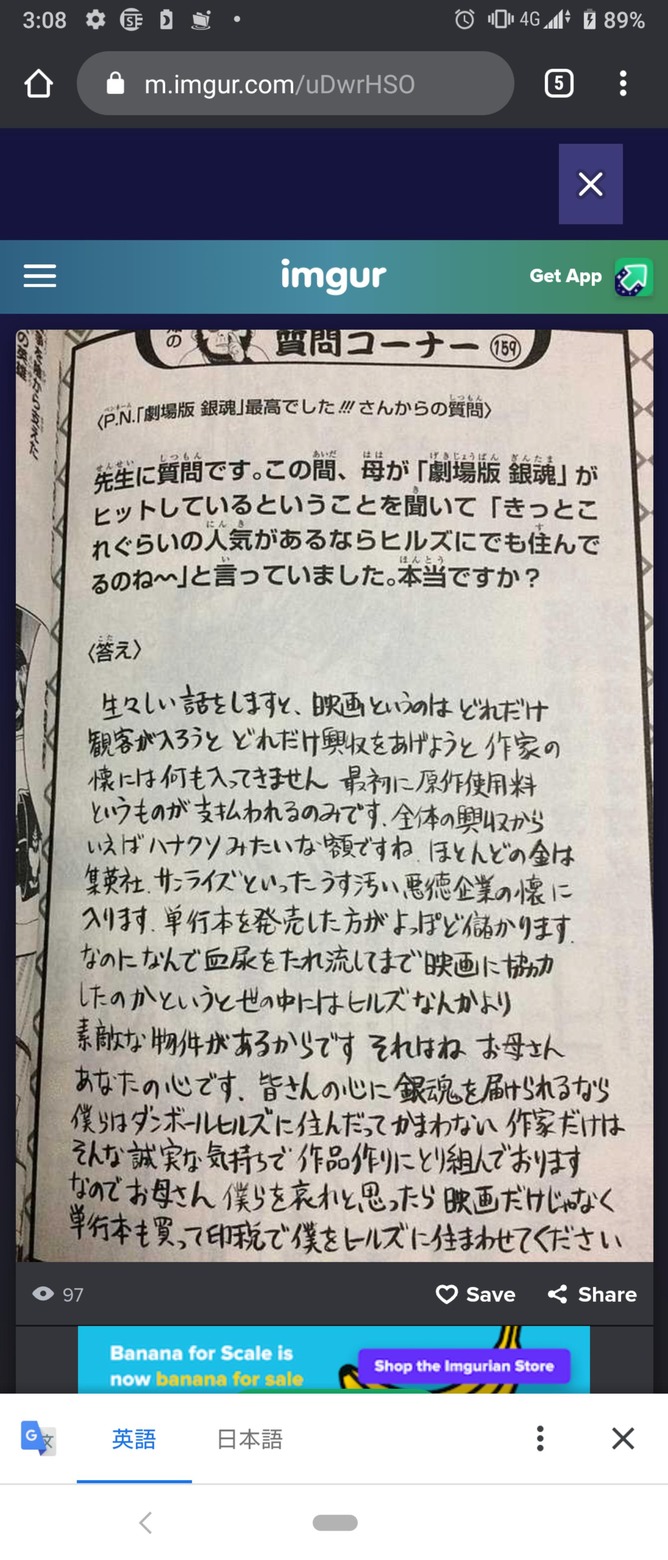 3:08
4G
89%
m.imgur.com/uDwrHSO
5
imgur
Get App
の
質問コーナー 159
〈P.N.「劇場版 銀魂」最高でした!!! さんからの質問〉
先生に質問です。この間、母が「劇場版 銀魂」が
ヒットしているということを聞いて「きっとこ
れぐらいの人気があるならヒルズにでも住んで
るのね〜〜」と言っていました。本当ですか?
〈答え〉
生々しい話をしますと、映画というのは どれだけ
観客が入ろうと どれだけ興収をあげようと 作家の
懐には何も入ってきません 最初に原作使用料
というものが支払われるのみです. 全体の興収から
いえばハナクソみたいな額ですね. ほとんどの金は
集英社. サンライズといったうす汚い悪徳企業の懐に
入ります. 単行本を発売した方がよっぽど儲かります.
なのになんで血尿をたれ流してまで映画に協力
したのかというと世の中にはヒルズなんかより
素敵な物件があるからです それはね お母さん
あなたの心です. 皆さんの心に銀魂を届けられるなら
僕らはダンボールヒルズに住んだってかまわない 作家だけは
そんな誠実な気持ちで 作品作りにとり組んでおります
なのでお母さん 僕らを哀れと思ったら 映画だけじゃなく
単行本も買って印税で僕をヒルズに住まわせてください
97
Save
Share
Banana for Scale is
now banana for sale
Shop the Imgurian Store
英語
日本語